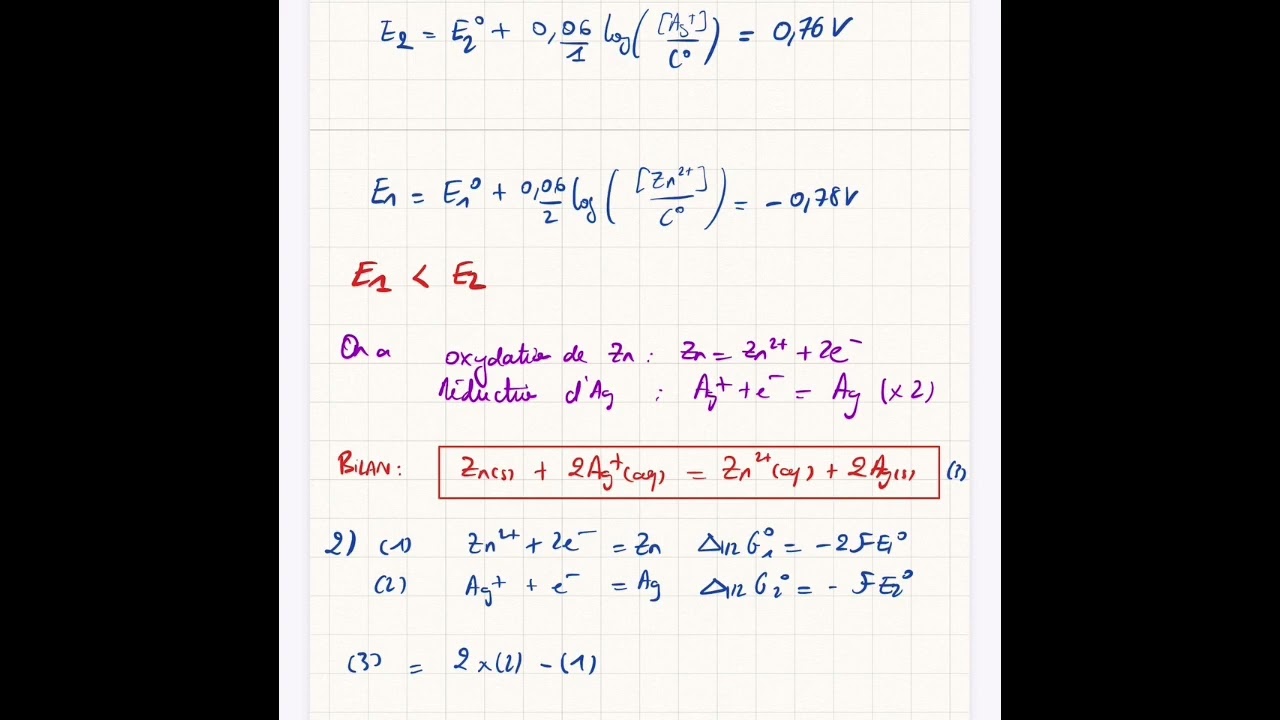 E₂ = E₂⁰ + 0,06/1 log([Ag⁺]/C⁰) = 0,76 V
E₁ = E₁⁰ + 0,06/2 log([Zn²⁺]/C⁰) = - 0,78V
E₁ < E₂
On a oxydation de Zn : Zn = Zn²⁺ + 2e⁻
Réduction d'Ag : Ag⁺ + e⁻ = Ag (x 2)
BILAN : Zn(s) + 2Ag⁺(aq) = Zn²⁺(aq) + 2Ag(s) (3)
2) (1) Zn²⁺ + 2e⁻ = Zn Δ₁/₂ G₁⁰ = - 2 F E₁⁰
(2) Ag⁺ + e⁻ = Ag Δ₁/₂ G₂⁰ = - F E₂⁰
(3) = 2 x (2) - (1)